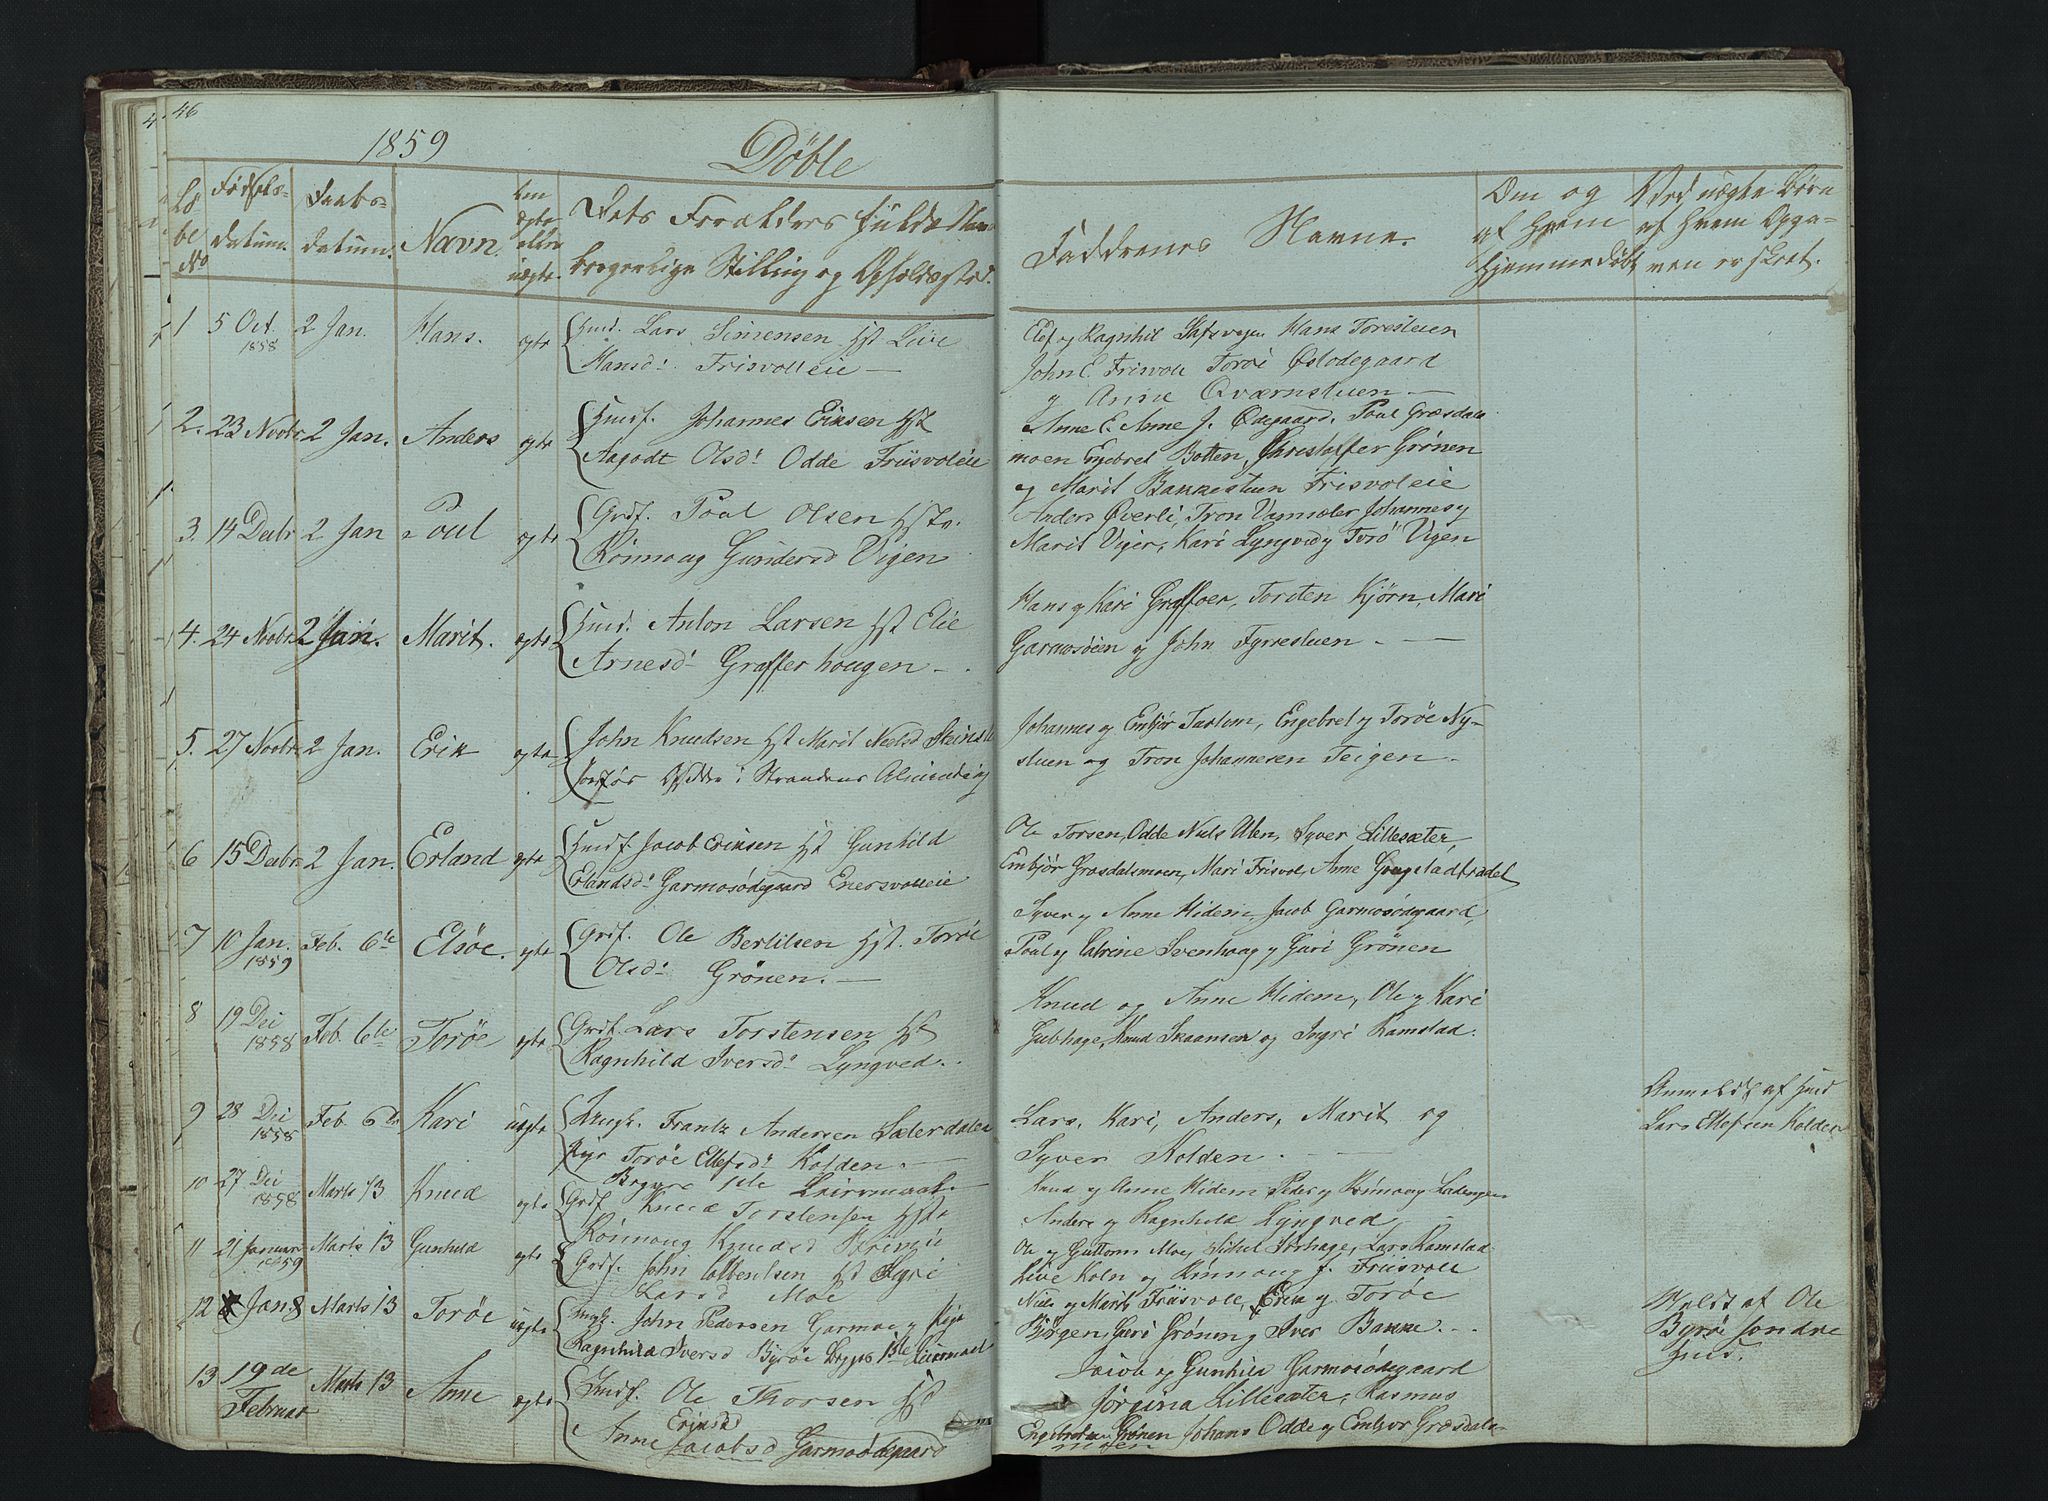 46
1859
Døbte
Løbe No
Fødsels-datum.
Daabs-datum.
Navn.
Om ægte eller uægte
Dets Forældres fulde Navn
borgerlige Stilling og Opholdssted.
Faddrenes Navne.
Om og af hvem hjemmedøbt
Ved uægte Børn af hvem Opga-ven er skeet.
1 5 Oct. 1858 2 Jan. Hans. egte Huusf. Lars Simensen Hst Live
Hansd. Frisvolleie —
Elef og Ragnhil Hans Toresteien
John E. Frisvole Toröe Ødegaard
og Anne Qværnstuen —
2. 23 Novbr 2 Jan. Anders egte Huusf. Johannes Eriksen Hst
Aagodt Olsd. Odde Friisvoleie
Anne E. Anne J. Ødegaard, Poul Græsdals
moen Engebret Botten, Christoffer Grönen
og Marit Bakkestuen Frisvoleie
3. 14 Decbr 2 Jan Poul egte Grdf. Poul Olsen Hst.
Rönnoug Gundersd Vigen
Anders Överli, Tron Johannes og
Marit Vigen, Kari Lyngved og Torö Vigen
4. 24 Novbr 2 Jan. Marit. egte Huusf. Anton Larsen Hst Elie
Arnesd Grafferhougen —
Hans og Kari Graffoer, Torsten Kjörn, Mari
Garmosöien og John Fyrrestuen. —
5. 27 Novbr 2 Jan. Erik egte John Knudsen Hst Marit Neelsd
Odde i Strandens Alminding
Johannes og Embjør, Engebret og Toröe Ny-
stuen og Tron Johannesen Teigen.
6 15 Decbr 2 Jan. Erland egte Huusf Jacob Eriksen Hst Gunhild
Erlandsd. Garmosödegaard Enersvolleie
Ole Torsen, Odde Niels Ulen, Syver Lillesæter,
Embjör Græsdalsmoen, Mari Frisvol, Anne
7 10 Jan. 1859 Feb. 6te Elsöe. egte Grdf. Ole Bertilsen Hst. Toröe
Olsd. Grönen. —
Syver og Anne Hidem, Jacob Garmosödegaard,
Poul og Catrine Svenhaag og Guri Grönen
8 19 Dei 1858 Feb. 6te Toröe egte Grdf. Lars Torstensen Hst
Ragnhild Iversd. Lyngved.
Knud og Anne Hidem, Ole og Kari
Gubhage, Knud Skaansen og Ingri Ramstad.
9 28 Dei 1858 Feb. 6te Kari uegte Ungk. Frantz Andersen Sæterdalen
Pige Toröe Ellefsd. Kolden. —
Begges 1ste Leiermaal. —
Lars, Kari, Anders, Marit og
Syver Holden.
Anmeldt af Huusf
Lars Ellefsen Kolden
10 27 Dei 1858 Marts 13 Knud egte Grdf Knud Torstensen Hst
Rönnoug Knudsd
Knud og Anne Hidem, Peder og Rönnoug
Anders og Ragnhild Lyngved,
11 21 Januar 1859 Marts 13 Gunhild egte Grdf. John Hst Ingri
Larsd Moe
Ole og Guttorm Moe, Sörhage, Lars Ramstad
Live Koln og Rönnoug J. Friisvole
12 Jan. 8 Marts 13 Toröe uegte Ungk. John Pedersen Garmoe og Pige
Ragnhild Iversd Byröe Begges 1ste Leiermaal
Niels og Marit Friisvole, Erik og Toröe
Björgen, Guri Gröning og Iver Bakke.
Meldt af Ole
Byröe söndre
Huusf.
13 19de Februar Marts 13 Anne egte Huusf. Ole Thorsen Hst
Eriksd
Anne Jacobsd Garmosödegaard
Jacob og Gunhild Garmosödegaard
Jörgina Lillesæter, Rasmus
Engebretsen Grönen Johans Odde og Embjør Græsdals-
moen